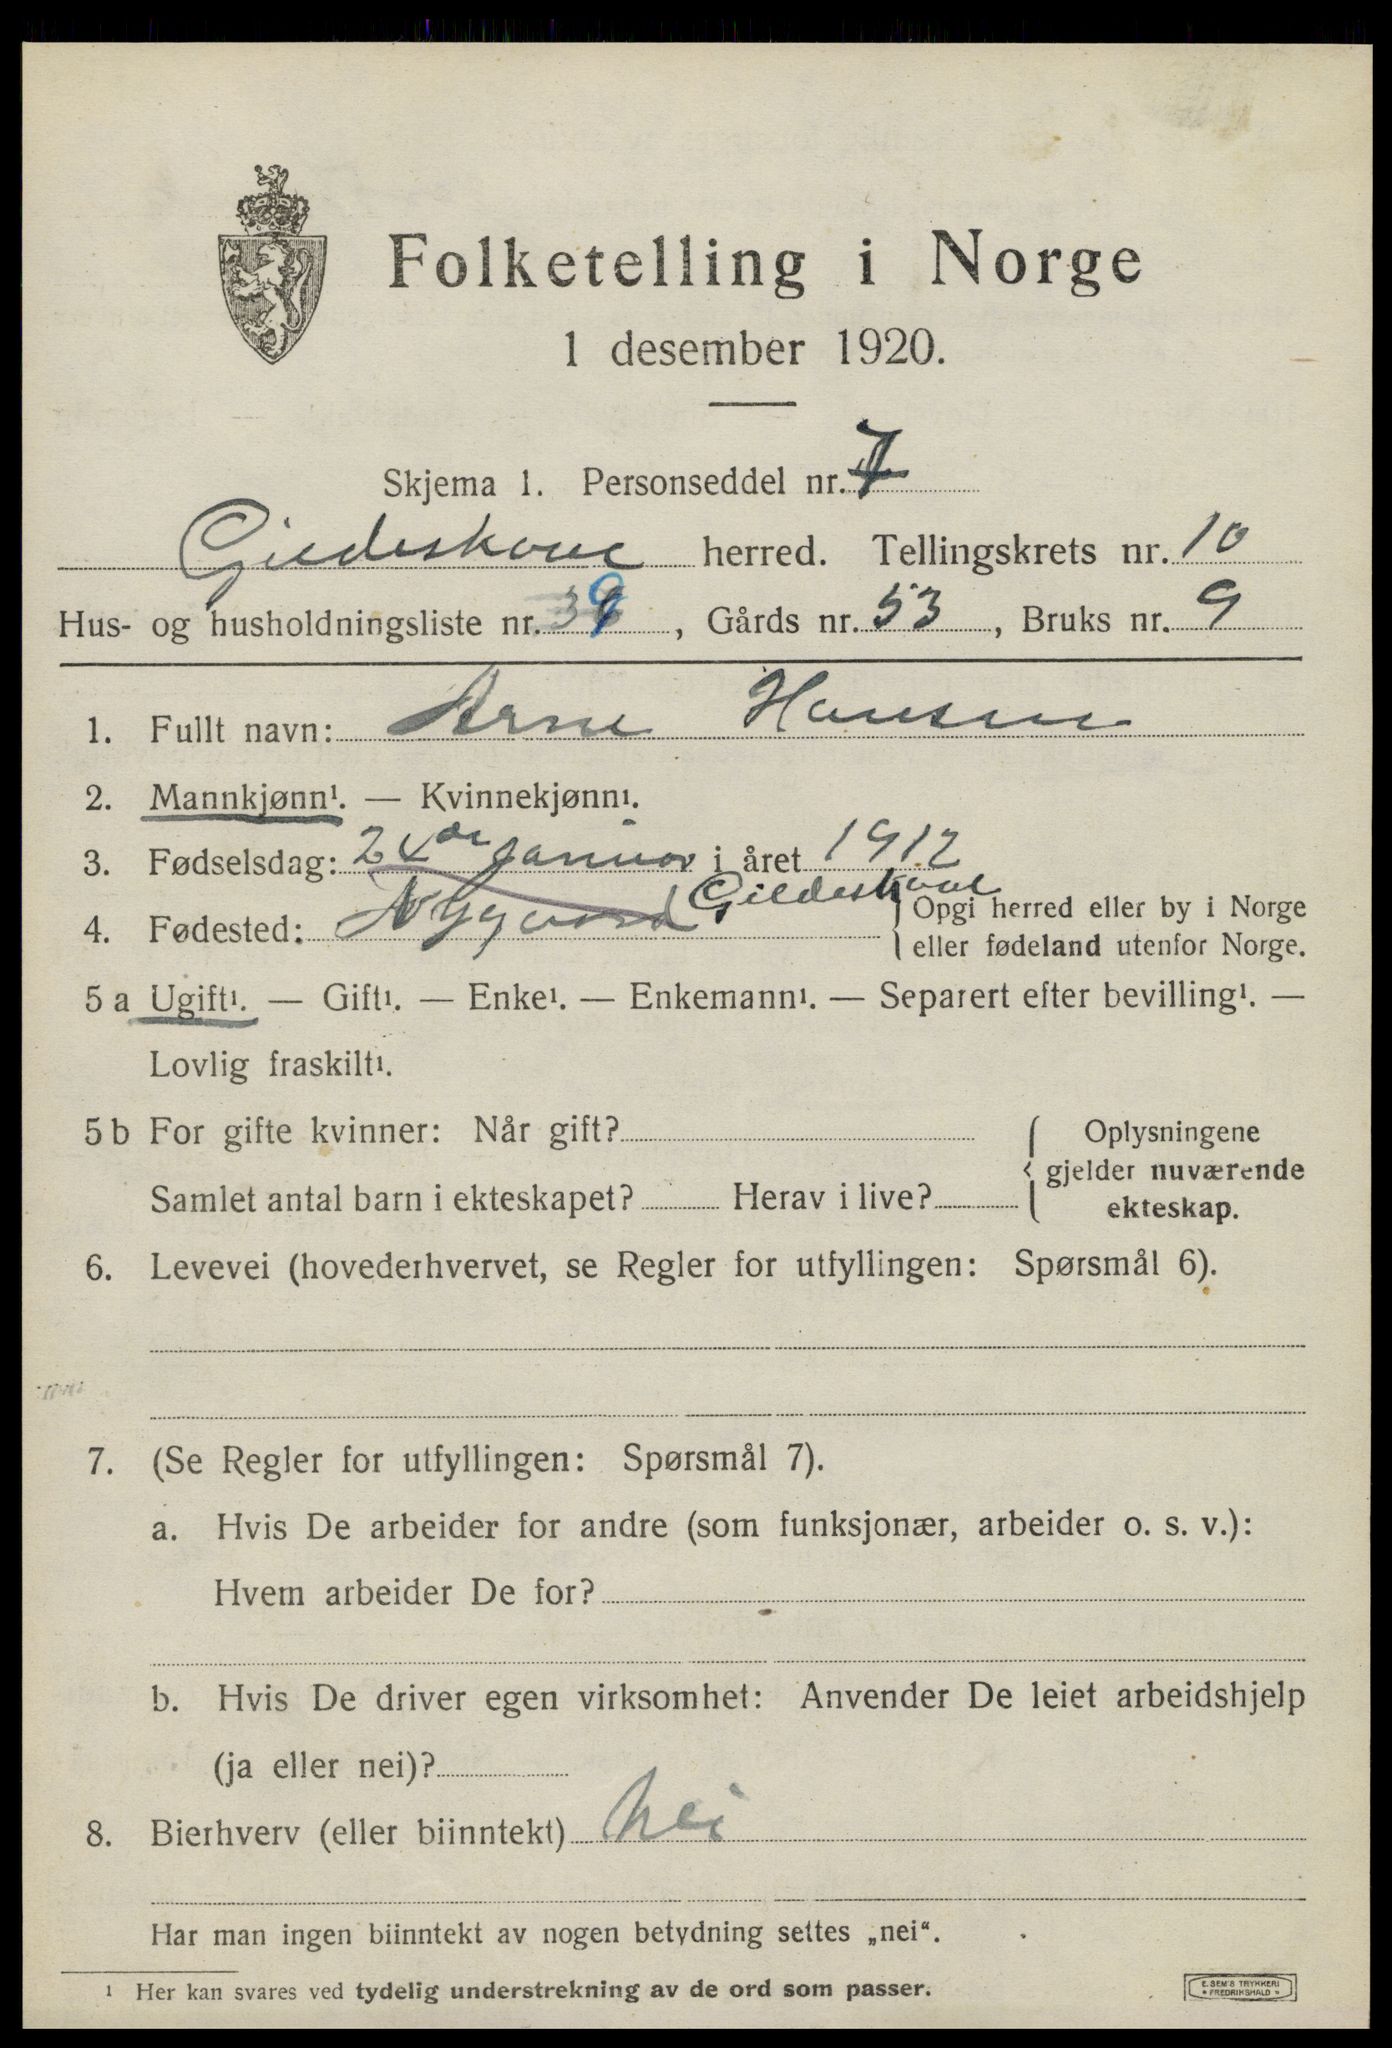 Folketelling i Norge
1 desember 1920.
Skjema 1. Personseddel nr. 7
Gildeskaal herred. Tellingskrets nr. 10
Hus- og husholdningsliste nr. 39, Gårds nr. 53, Bruks nr. 9
1. Fullt navn: Arne Hansen
2. Mannkjønn¹. — Kvinnekjønn¹.
3. Fødselsdag: 24de Januar i året 1912
4. Fødested: Nygaard Gildeskaal Opgi herred eller by i Norge
eller fødeland utenfor Norge.
5 a Ugift¹. — Gift¹. — Enke¹. — Enkemann¹. — Separert efter bevilling¹. —
Lovlig fraskilt¹.
5 b For gifte kvinner: Når gift? Oplysningene
gjelder nuværende
Samlet antal barn i ekteskapet? Herav i live? ekteskap.
6. Levevei (hovederhvervet, se Regler for utfyllingen: Spørsmål 6).
7. (Se Regler for utfyllingen: Spørsmål 7).
a. Hvis De arbeider for andre (som funksjonær, arbeider o. s. v.):
Hvem arbeider De for?
b. Hvis De driver egen virksomhet: Anvender De leiet arbeidshjelp
(ja eller nei)?
8. Bierhverv (eller biinntekt) Nei
Har man ingen biinntekt av nogen betydning settes „nei“.
¹ Her kan svares ved tydelig understrekning av de ord som passer.
E. SEM'S TRYKKERI
FREDRIKSHALD